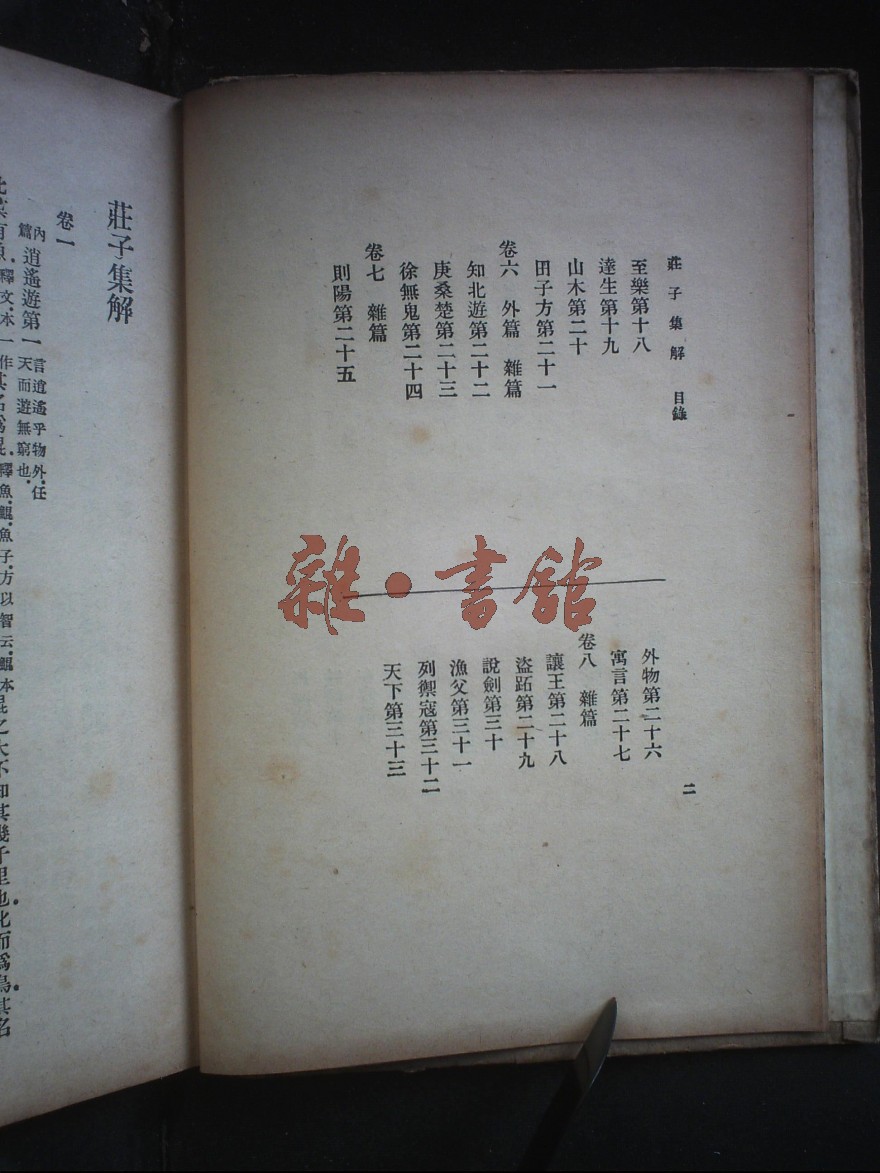 莊子集解 目錄
至樂第十八
達生第十九
山木第二十
田子方第二十一
卷六 外篇 雜篇
知北遊第二十二
庚桑楚第二十三
徐無鬼第二十四
卷七 雜篇
則陽第二十五
外物第二十六
寓言第二十七
卷八 雜篇
讓王第二十八
盜跖第二十九
說劍第三十
漁父第三十一
列禦寇第三十二
天下第三十三
二
雜·書館
莊子集解
卷一
內篇 逍遙遊第一 言逍遙乎物外，任天而遊無窮也。
有魚，釋文，本一作其名為鯤，釋魚，鯤，魚子，方以智云，鯤本之大不知其幾千里也，化而為鳥，其名